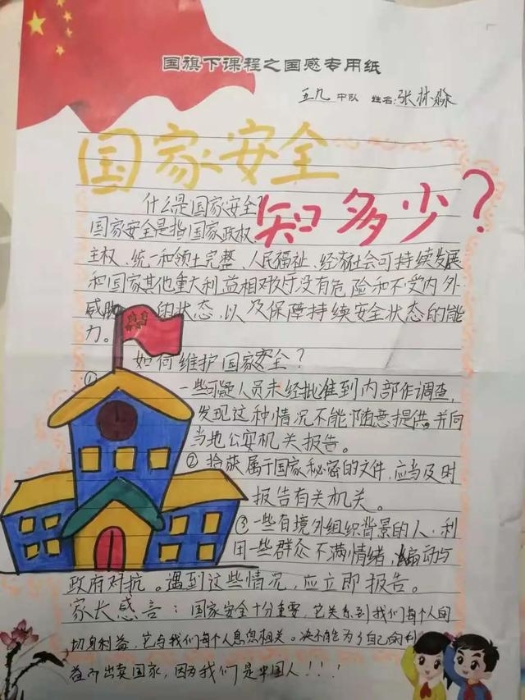 国旗下课程之国感专用纸
五九 中队 姓名:张林淼
国家安全
知多少?
什么是国家安全?
国家安全是指国家政权、
主权、统一和领土完整、人民福祉、经济社会可持续发展
和国家其他重大利益相对处于没有危险和不受内外
威胁的状态,以及保障持续安全状态的能
力。
如何维护国家安全?
① 一些可疑人员未经批准到内部作调查,
发现这种情况不能随意提供,并向
当地公安机关报告。
② 拾获属于国家秘密的文件,应当及时
报告有关机关。
③ 一些有境外组织背景的人,利
用一些群众不满情绪,煽动与
政府对抗。遇到这些情况,应立即报告。
家长感言:国家安全十分重要,它关系到我们每个人的
切身利益,它与我们每个人息息相关。决不能为了自己的利
益而出卖国家,因为我们是中国人!!!